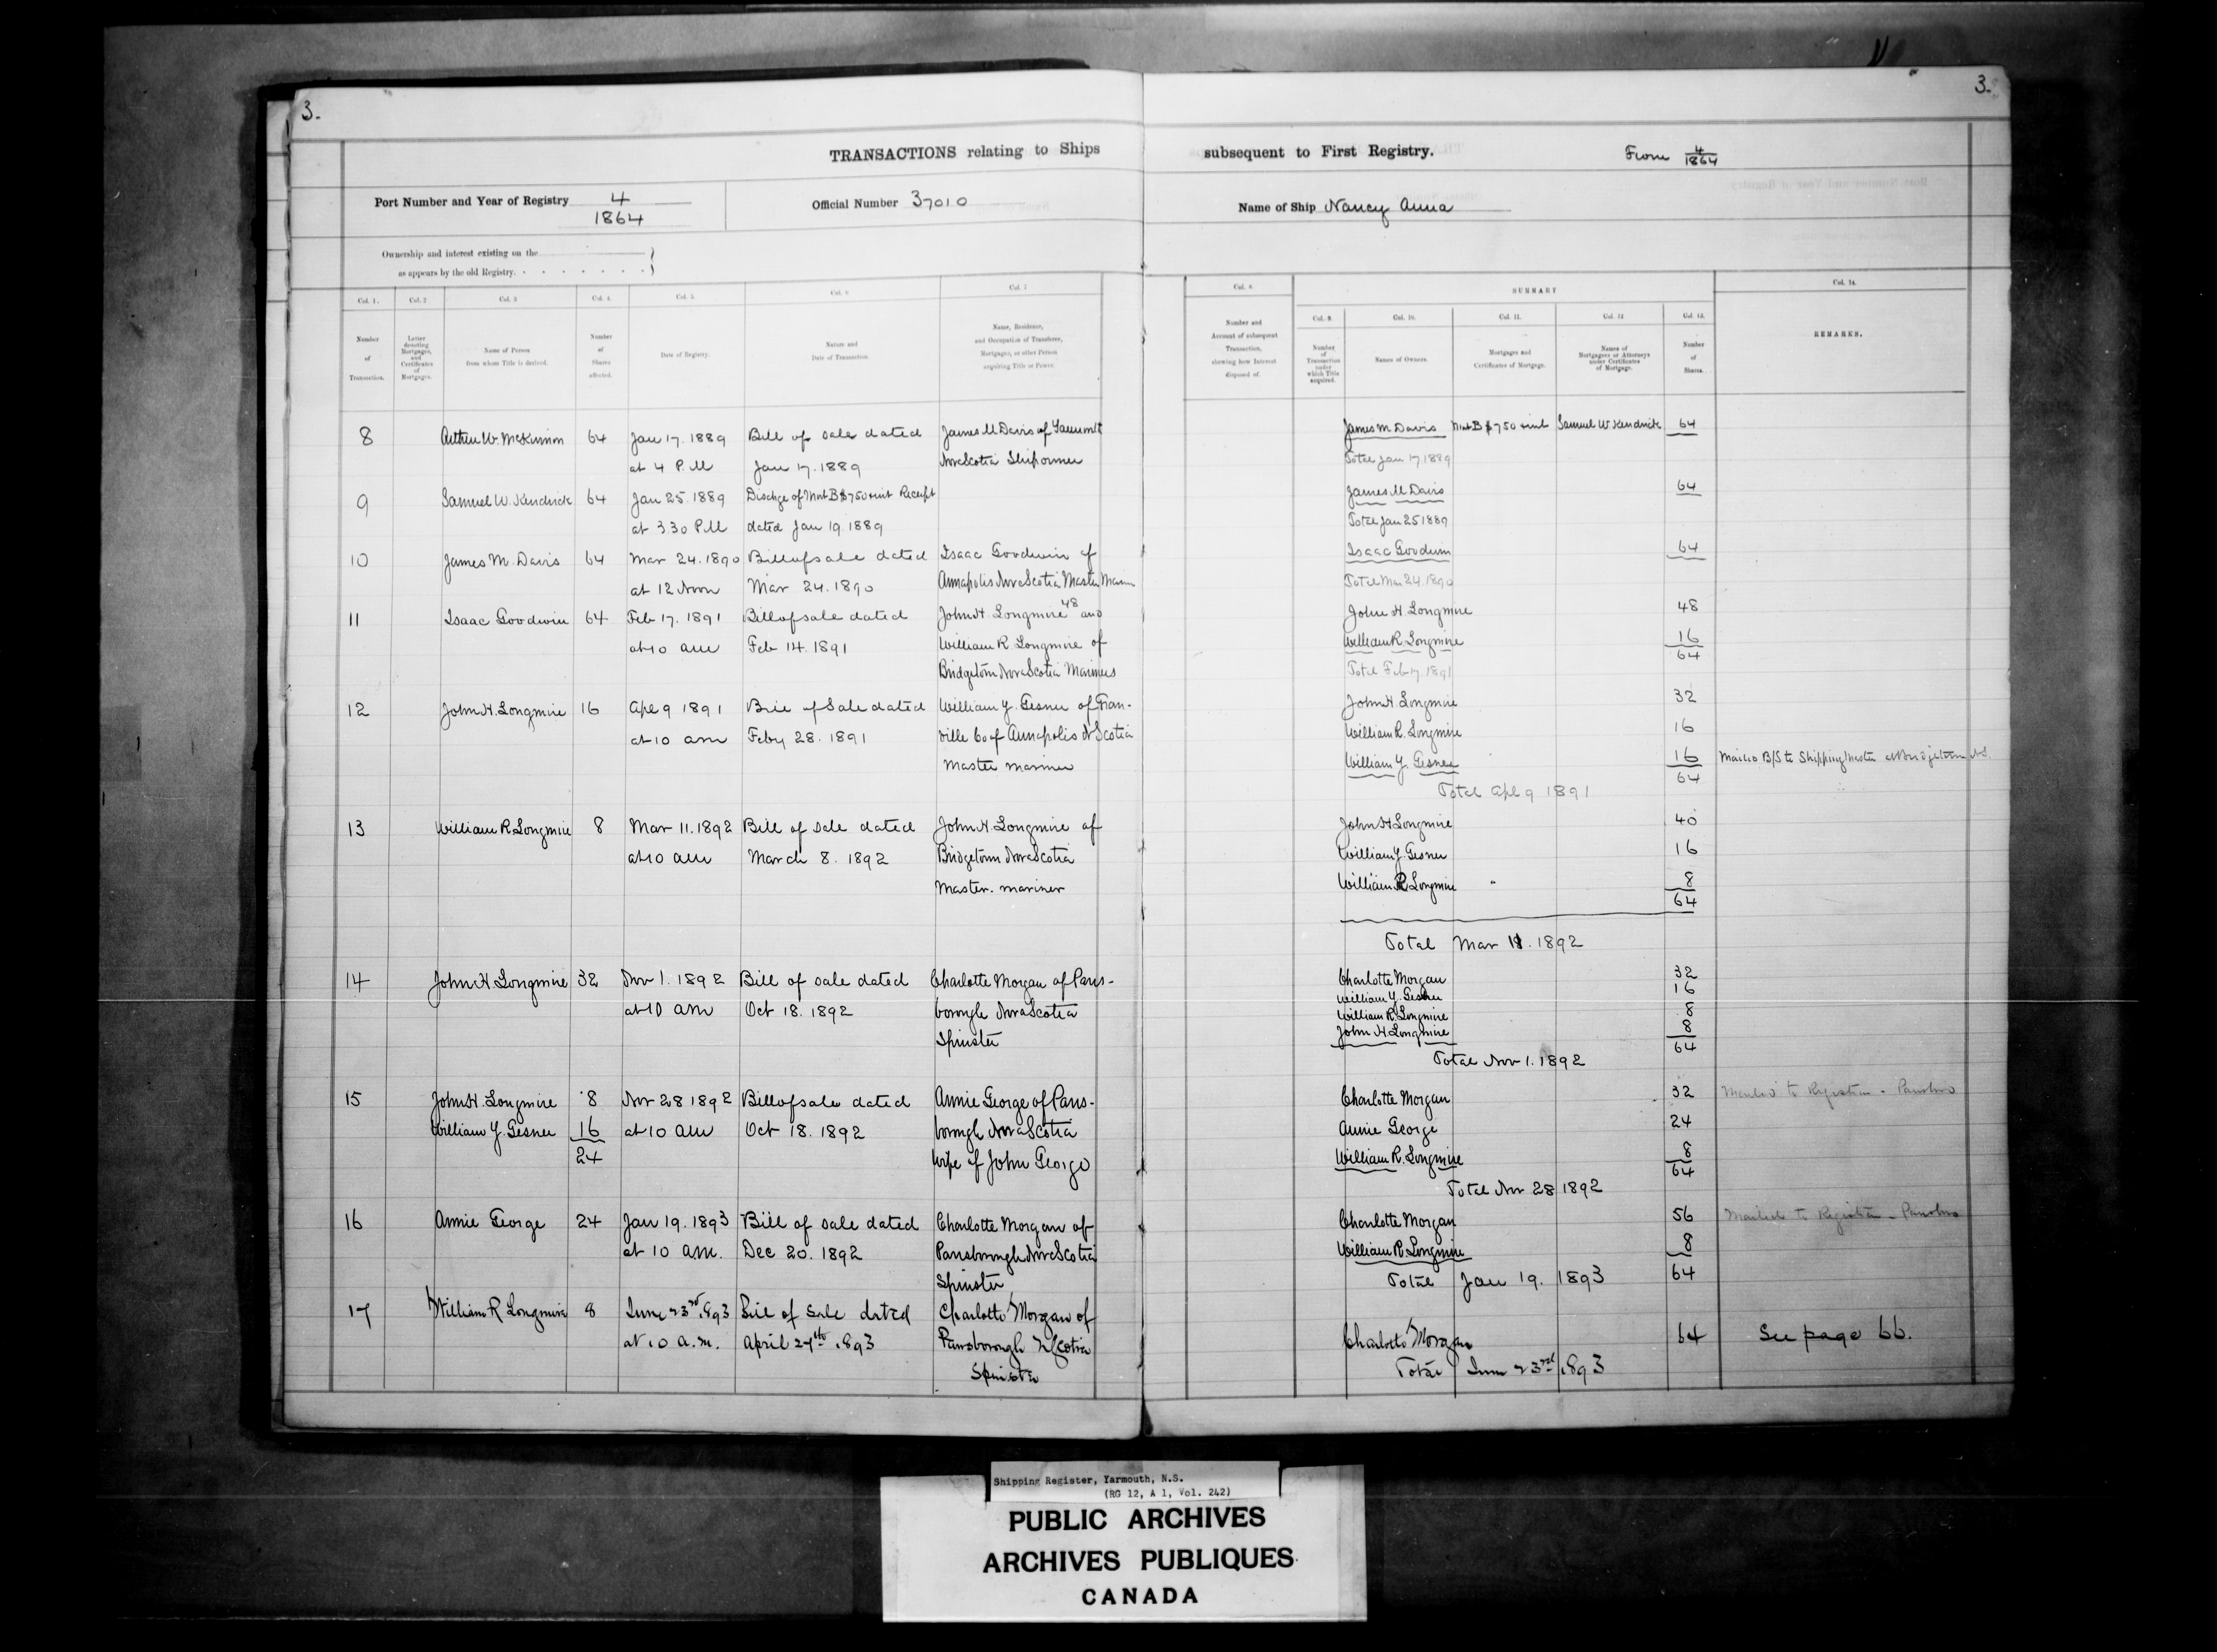 3.
3.
TRANSACTIONS relating to Ships subsequent to First Registry. From 4/1864
Port Number and Year of Registry 4/1864
Official Number 37010
Name of Ship Nancy Anna
Ownership and interest existing on the
as appears by the old Registry.
Col. 1. Number of Transaction.
Col. 2 Letter denoting Mortgages, and Certificates of Mortgages.
Col. 3 Name of Person from whom Title is derived.
Col. 4. Number of Shares affected.
Col. 5. Date of Registry.
Col. 6 Nature and Date of Transaction.
Col. 7 Name, Residence, and Occupation of Transferee, Mortgagee, or other Person acquiring Title or Power.
Col. 8. Number and Account of subsequent Transaction, showing how Interest disposed of.
SUMMARY
Col. 9. Number of Transaction under which Title acquired.
Col. 10. Names of Owners.
Col. 11. Mortgages and Certificates of Mortgage.
Col. 12 Names of Mortgagees or Attorneys under Certificates of Mortgage.
Col. 13. Number of Shares.
Col. 14. REMARKS.
8 Arthur W. McKinnon 64 Jan 17. 1889 Bill of sale dated James M Davis of Yarmouth James M Davis Mort B $750 + int Samuel W Kendrick 64
at 4 P.M Jan 17. 1889 Nova Scotia Shipowner Total Jan 17 1889
9 Samuel W. Kendrick 64 Jan 25. 1889 Dischge of Mort B $750 + int Receipt James M Davis 64
at 3.30 P.M dated Jan 19. 1889 Total Jan 25 1889
10 James M. Davis 64 Mar 24. 1890 Bill of sale dated Isaac Goodwin of Isaac Goodwin 64
at 12 Noon Mar 24. 1890 Annapolis Nova Scotia Master Marin Total Mar 24. 1890
11 Isaac Goodwin 64 Feb 17. 1891 Bill of sale dated John H. Longmire 48 and John H Longmire 48
at 10 am Feb 14. 1891 William R. Longmire of William R Longmire 16
Bridgetown Nova Scotia Mariners Total Feb 17. 1891 64
12 John H. Longmire 16 Apl 9 1891 Bill of Sale dated William Y. Gesner of Gran- John H. Longmire 32
at 10 am Feby 28. 1891 ville Co of Annapolis N Scotia William R. Longmire 16
Master mariner William Y. Gesner 16 Mailed B/S to Shipping Master at Bridgetown N.S.
64
Total Apl 9 1891
13 William R Longmire 8 Mar 11. 1892 Bill of Sale dated John H. Longmire of John H Longmire 40
at 10 am March 8. 1892 Bridgetown Nova Scotia William Y. Gesner 16
Master. mariner William R Longmire 8
64
Total Mar 11. 1892
14 John H Longmire 32 Nov 1. 1892 Bill of sale dated Charlotte Morgan of Parrs- Charlotte Morgan 32
William Y. Gesner 16
at 10 am Oct 18. 1892 borough Nova Scotia William R. Longmire 8
Spinster John H Longmire 8
64
Total Nov 1. 1892
15 John H. Longmire 8 Nov 28 1892 Bill of sale dated Annie George of Parrs- Charlotte Morgan 32 Mailed to Registrar - Parrsboro
William Y. Gesner 16 at 10 am Oct 18. 1892 borough Nova Scotia Annie George 24
24 Wife of John George William R. Longmire 8
64
Total Nov 28 1892
16 Annie George 24 Jan 19. 1893 Bill of sale dated Charlotte Morgan of Charlotte Morgan 56 Mailed to Registrar - Parrsboro
at 10 am. Dec 20. 1892 Parrsborough Nova Scotia William R Longmire 8
Spinster Total Jan 19. 1893 64
17 William R Longmire 8 June 23rd 1893 Bill of Sale dated Charlotte Morgan of
at 10 a.m. April 27th 1893 Parrsborough N Scotia Charlotte Morgan 64 See page 66.
Spinster Total June 23rd 1893
Shipping Register, Yarmouth, N.S.
(RG 12, A 1, Vol. 242)
PUBLIC ARCHIVES
ARCHIVES PUBLIQUES
CANADA